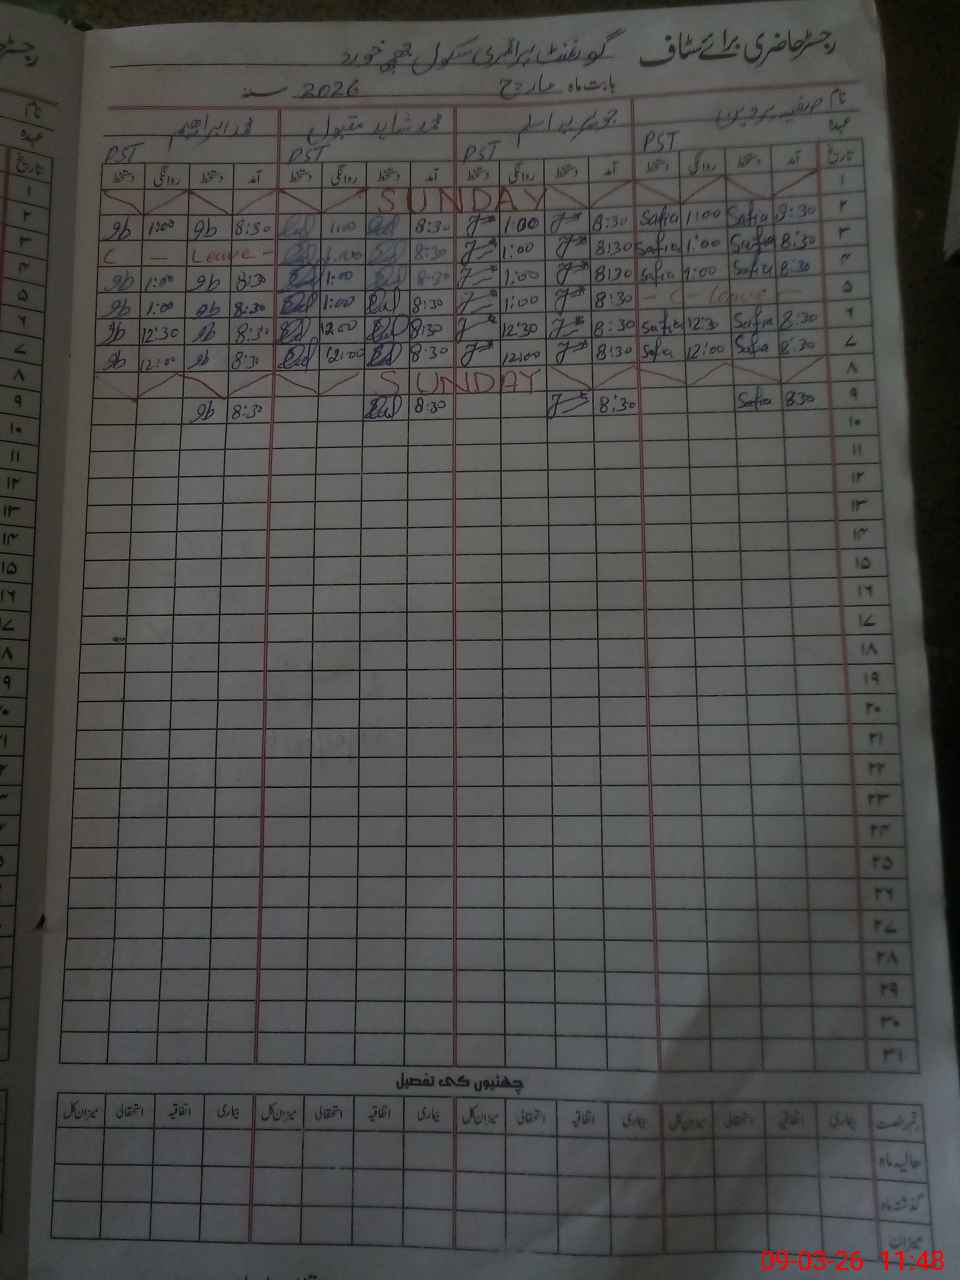 رجسٹر حاضری برائے سٹاف گورنمنٹ پرائمری سکول
بابت ماہ مارچ 2026 سنہ
نام صفیہ پروین جویریہ اسلم محمد شاہد مقبول محمد ابراہیم
عہدہ PST PST PST PST
تاریخ آمد دستخط روانگی دستخط آمد دستخط روانگی دستخط آمد دستخط روانگی دستخط آمد دستخط روانگی دستخط
۱ SUNDAY
۲ 8:30 Safia 1:00 Safia 8:30 1:00 8:30 1:00 8:30 1:00
۳ 8:30 Safia 1:00 Safia 8:30 1:00 8:30 1:00 - Leave - C
۴ 8:30 Safia 1:00 Safia 8:30 1:00 8:30 1:00 8:30 1:00
۵ - C - Leave - 8:30 1:00 8:30 1:00 8:30 1:00
۶ 8:30 Safia 12:30 Safia 8:30 12:30 8:30 12:00 8:30 12:30
۷ 8:30 Safia 12:00 Safia 8:30 12:00 8:30 12:00 8:30 12:00
۸ SUNDAY
۹ 8:30 Safia 8:30 8:30 8:30
۱۰
۱۱
۱۲
۱۳
۱۴
۱۵
۱۶
۱۷
۱۸
۱۹
۲۰
۲۱
۲۲
۲۳
۲۴
۲۵
۲۶
۲۷
۲۸
۲۹
۳۰
۳۱
چھٹیوں کی تفصیل
رخصت بیماری اتفاقیہ استحقاقی میزان کل بیماری اتفاقیہ استحقاقی میزان کل بیماری اتفاقیہ استحقاقی میزان کل بیماری اتفاقیہ استحقاقی میزان کل
حالیہ ماہ
گذشتہ ماہ
میزان
09-03-26 11:48